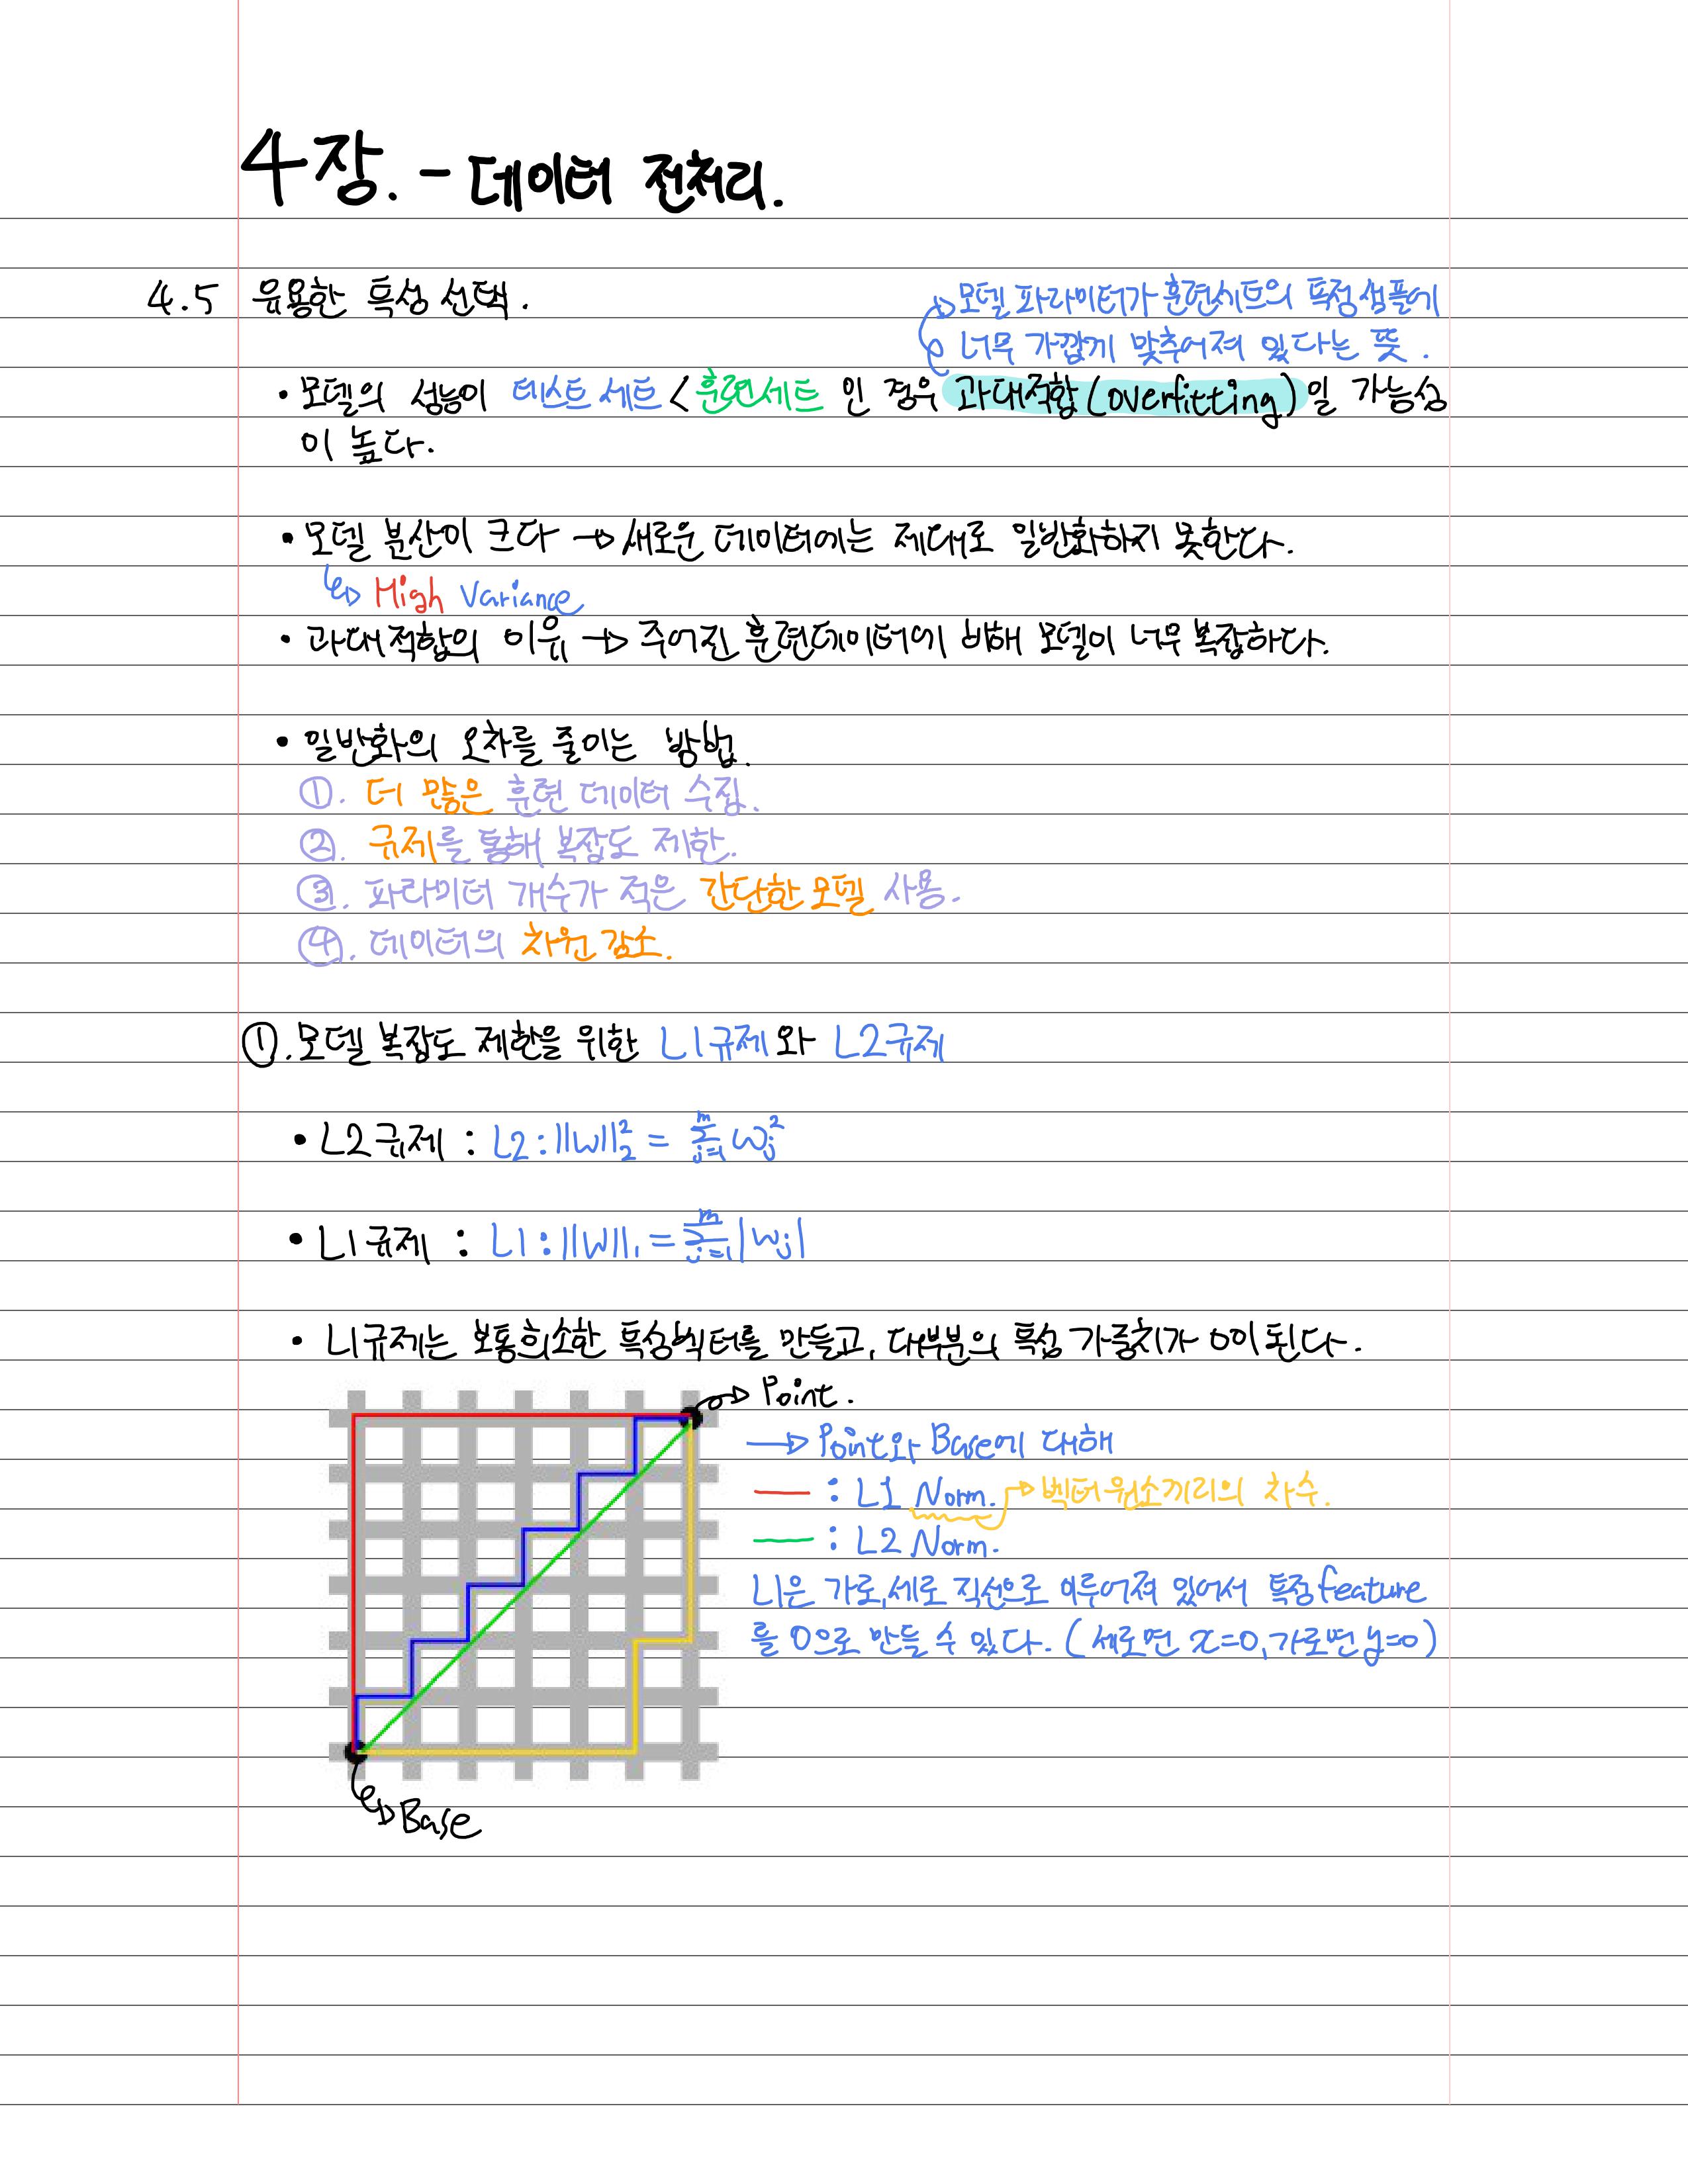 4장. - 데이터 전처리.
4.5 유용한 특성 선택.
모델 파라미터가 훈련세트의 특정샘플에
너무 가깝게 맞추어져 있다는 뜻.
• 모델의 성능이 테스트 세트 < 훈련세트 인 경우 과대적합(overfitting)일 가능성
이 높다.
• 모델 분산이 크다 → 새로운 데이터에는 제대로 일반화하지 못한다.
↳ High Variance
• 과대적합의 이유 → 주어진 훈련데이터에 비해 모델이 너무 복잡하다.
• 일반화의 오차를 줄이는 방법.
①. 더 많은 훈련 데이터 수집.
②. 규제를 통해 복잡도 제한.
③. 파라미터 개수가 적은 간단한 모델 사용.
④. 데이터의 차원 감소.
①. 모델 복잡도 제한을 위한 L1규제와 L2규제
• L2규제 : L2 : ||W||₂² = Σ_{j=1}^{m} w_j²
• L1규제 : L1 : ||W||₁ = Σ_{j=1}^{m} |w_j|
• L1규제는 보통희소한 특성벡터를 만들고, 대부분의 특성 가중치가 0이 된다.
→ Point.
→ Point와 Base에 대해
— : L1 Norm. → 벡터 원소끼리의 차수.
— : L2 Norm.
L1은 가로,세로 직선으로 이루어져 있어서 특정 feature
를 0으로 만들 수 있다. (세로면 x=0, 가로면 y=0)
↳ Base